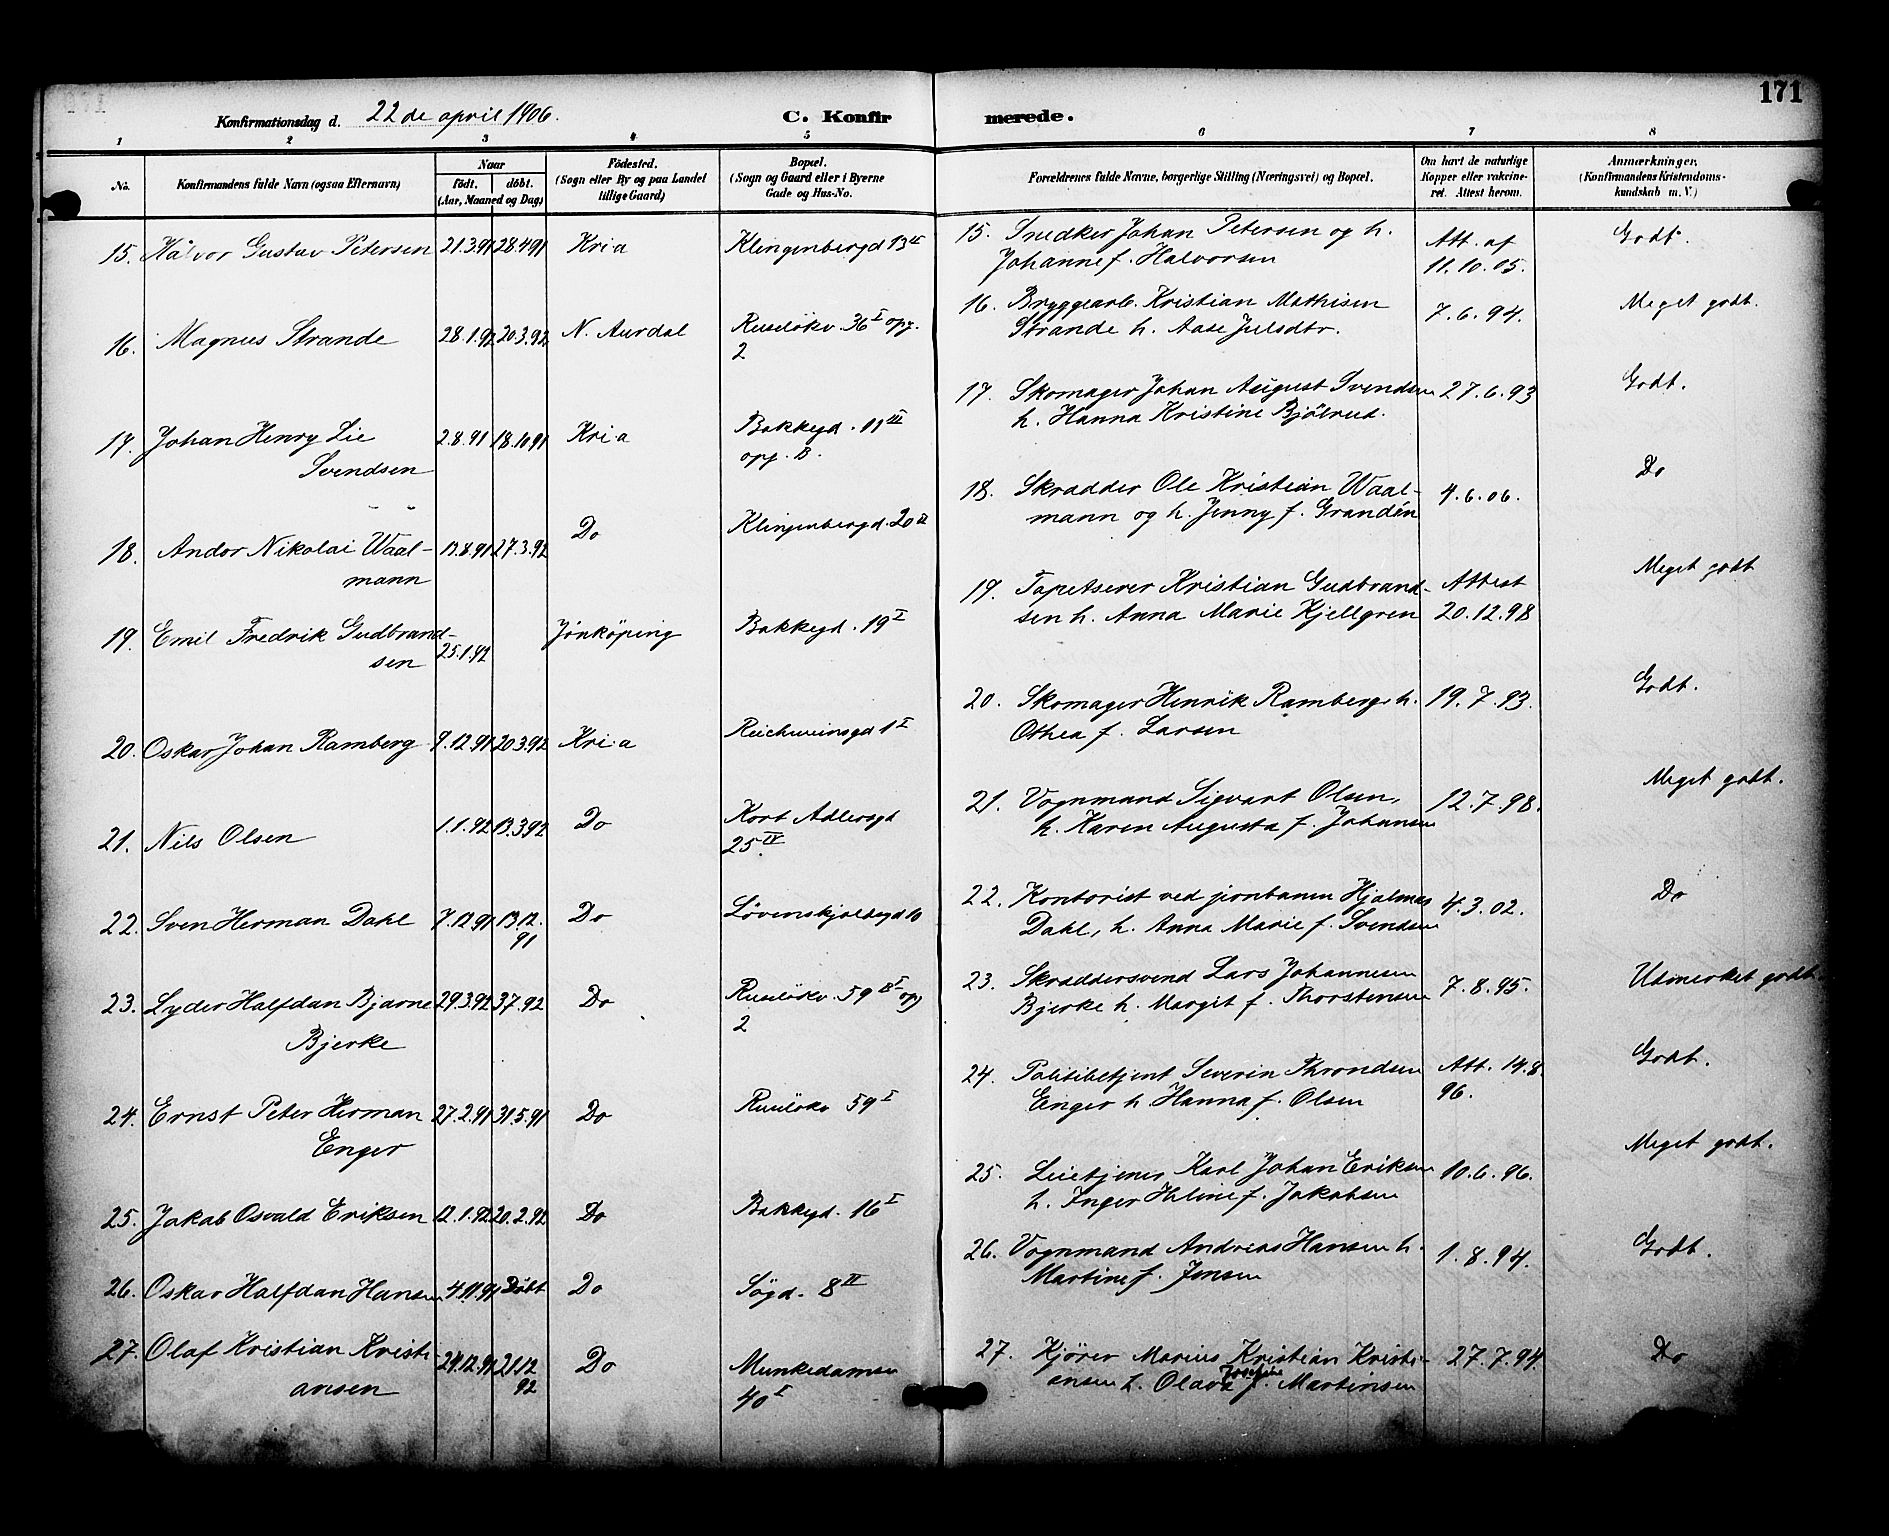 171
Konfirmationsdag d. 22 de april 1906.
C. Konfirmerede.
1 2 3 4 5 6 7 8
No.
Konfirmandens fulde Navn (ogsaa Efternavn)
Naar
født. døbt.
(Aar, Maaned og Dag)
Fødested.
(Sogn eller By og paa Landet
tillige Gaard)
Bopæl.
(Sogn og Gaard eller i Byerne
Gade og Hus-No.
Forældrenes fulde Navne, borgerlige Stilling (Næringsvei) og Bopæl.
Om havt de naturlige
Kopper eller vakcine-
ret. Attest herom.
Anmærkninger.
(Konfirmandens Kristendoms-
kundskab m. V.)
15. Halvor Gustav Pedersen 21.3.91 28.4.91 Kria Klingenbergd 13 II
15. Snedker Johan Petersen og h. Att. af Godt.
Johanne f. Halvorsen 11.10.05.
16. Magnus Strande 28.1.92 20.3.92 N. Aurdal Ruseløkv. 36 I opg.
2
16. Bryggearb. Kristian Mathisen 7.6.94. Meget godt.
Strande h. Aase Julsdtr.
17. Johan Henry Lie 2.8.91 18.10.91 Kria Bakkegd. 11 III
Svendsen opg. B.
17. Skomager Johan August Svendsen 27.6.93 Godt.
h. Hanna Kristine Bjølrud.
18. Andor Nikolai Waal- 13.8.91 27.3.92 Do Klingenbergd. 20 II
mann
18. Skrædder Ole Kristian Waal- 4.6.06. Do
mann og h. Jenny f. Grandén
19. Emil Fredrik Gudbrand- 25.1.92 Jönköping Bakkegd. 19 I
sen
19. Tapetserer Kristian Gudbrand- Attest Meget godt
sen h. Anna Marie Kjellgren 20.12.98
20. Oskar Johan Ramberg 9.12.91 20.3.92 Kria Reichweinsgd 1 I
20. Skomager Henrik Ramberg h. 19.7.93. Godt.
Othea f. Larsen
21. Nils Olsen 1.1.92 13.3.92 Do Kort Adlersgd
25 IV
21. Vognmand Sigvart Olsen, 12.7.98. Meget godt.
h. Karen Augusta f. Johansen
22. Sven Herman Dahl 7.12.91 13.12. Do Løvenskjoldsgd 10
91
22. Kontorist ved jernbanen Hjalmar 4.3.02. Do
Dahl, h. Anna Marie f. Svendsen
23. Lyder Halfdan Bjarne 29.3.92 3.7.92 Do Ruseløkv. 59 B I opg
Bjerke 2
23. Skræddersvend Lars Johannesen 7.8.95. Udmerket godt.
Bjerke h. Margit f. Thorstensen
24. Ernst Peter Herman 27.2.91 31.5.91 Do Ruseløkv 59 I
Enger
24. Politibetjent Severin Throndsen Att. 14.8. Godt.
Enger h. Hanna f. Olsen 96.
25. Jakob Osvald Eriksen 12.1.92 20.2.92 Do Bakkegd. 16 I
25. Leietjener Karl Johan Eriksen 10.6.96. Meget godt.
h. Inger Heline f. Jakobsen
26. Oskar Halfdan Hansen 4.11.91 Døbt Do Søgd. 8 II
26. Vognmand Andreas Hansen h. 1.8.94. Godt.
Martine f. Jensen
27. Olaf Kristian Kristi- 24.12.91 21.12 Do Munkedamsv
ansen 92 40 I
27. Kjører Marius Kristian Kristi- 27.7.94 Do
ansen h. Olava Josefine f. Martinsen